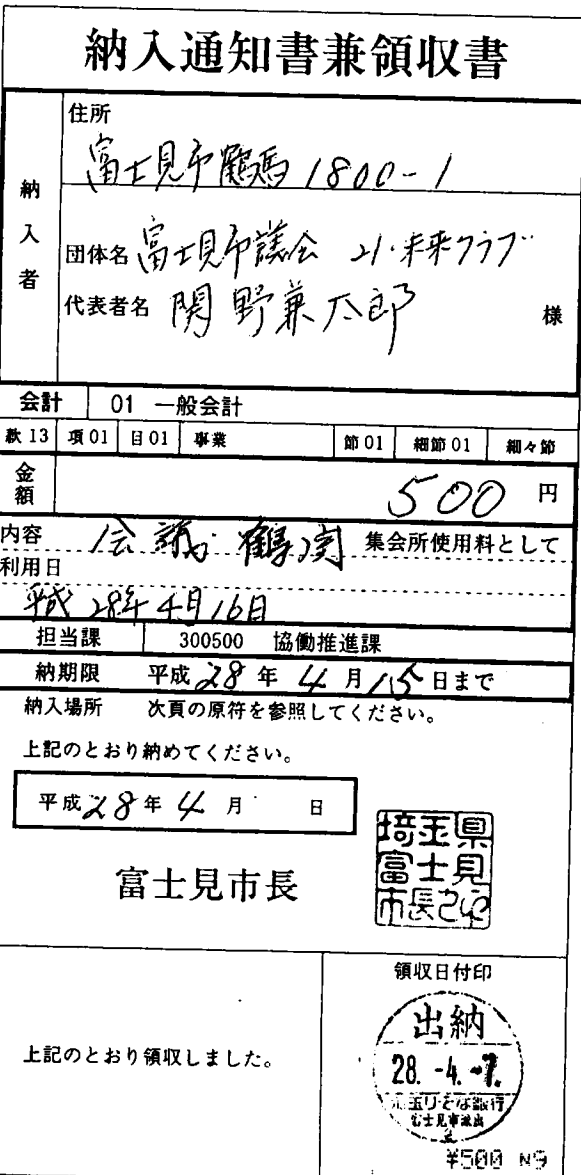 納入通知書兼領収書
納入者
住所
富士見市鶴馬1800-1
団体名 富士見市議会 21・未来クラブ
代表者名 関野兼太郎 様
会計 01 一般会計
款13 項01 目01 事業 節01 細節01 細々節
金額 500円
内容 会議 鶴瀬 集会所使用料として
利用日
平成28年4月16日
担当課 300500 協働推進課
納期限 平成28年4月15日まで
納入場所 次頁の原符を参照してください。
上記のとおり納めてください。
平成28年4月 日
富士見市長
埼玉県
富士見
市長之印
上記のとおり領収しました。
領収日付印
出納
28.-4.-7.
埼玉りそな銀行
富士見市派出
2
¥500 N9